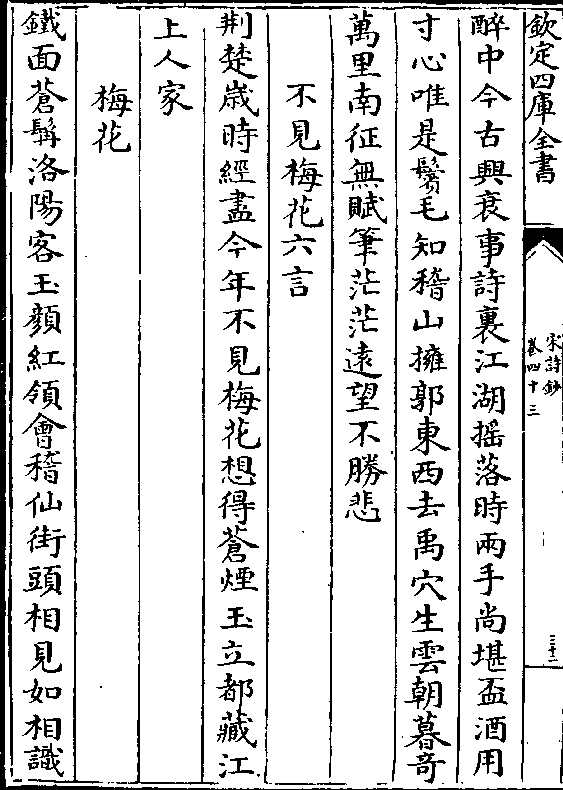 欽定四庫全書
宋詩鈔
卷四十三
三十二
醉中今古興衰事詩裏江湖搖落時兩手尚堪盃酒用
寸心唯是鬢毛知稽山擁郭東西去禹穴生雲朝暮奇
萬里南征無賦筆茫茫遠望不勝悲
不見梅花六言
荆楚歲時經盡今年不見梅花想得蒼煙玉立都藏江
上人家
梅花
鐵面蒼髯洛陽客玉顏紅領會稽仙街頭相見如相識